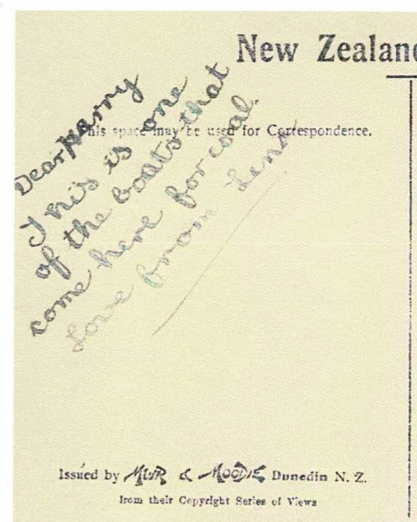 New Zealand
This space may be used for Correspondence.
Dear Harry
This is one
of the boats that
come here for coal.
Love from Lena
Issued by MUIR & MOODIE Dunedin N. Z.
from their Copyright Series of Views